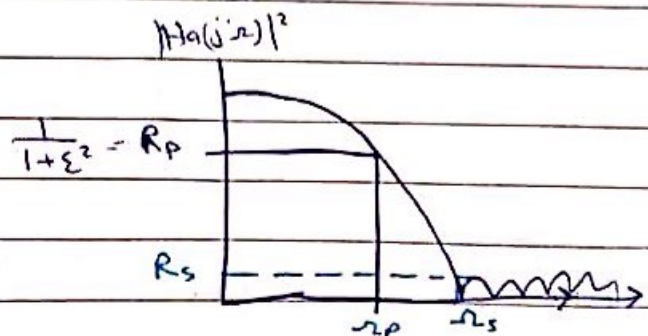 |Ha(jΩ)|²
1/(1+ε²) - Rp
Rs
Ωp Ωs